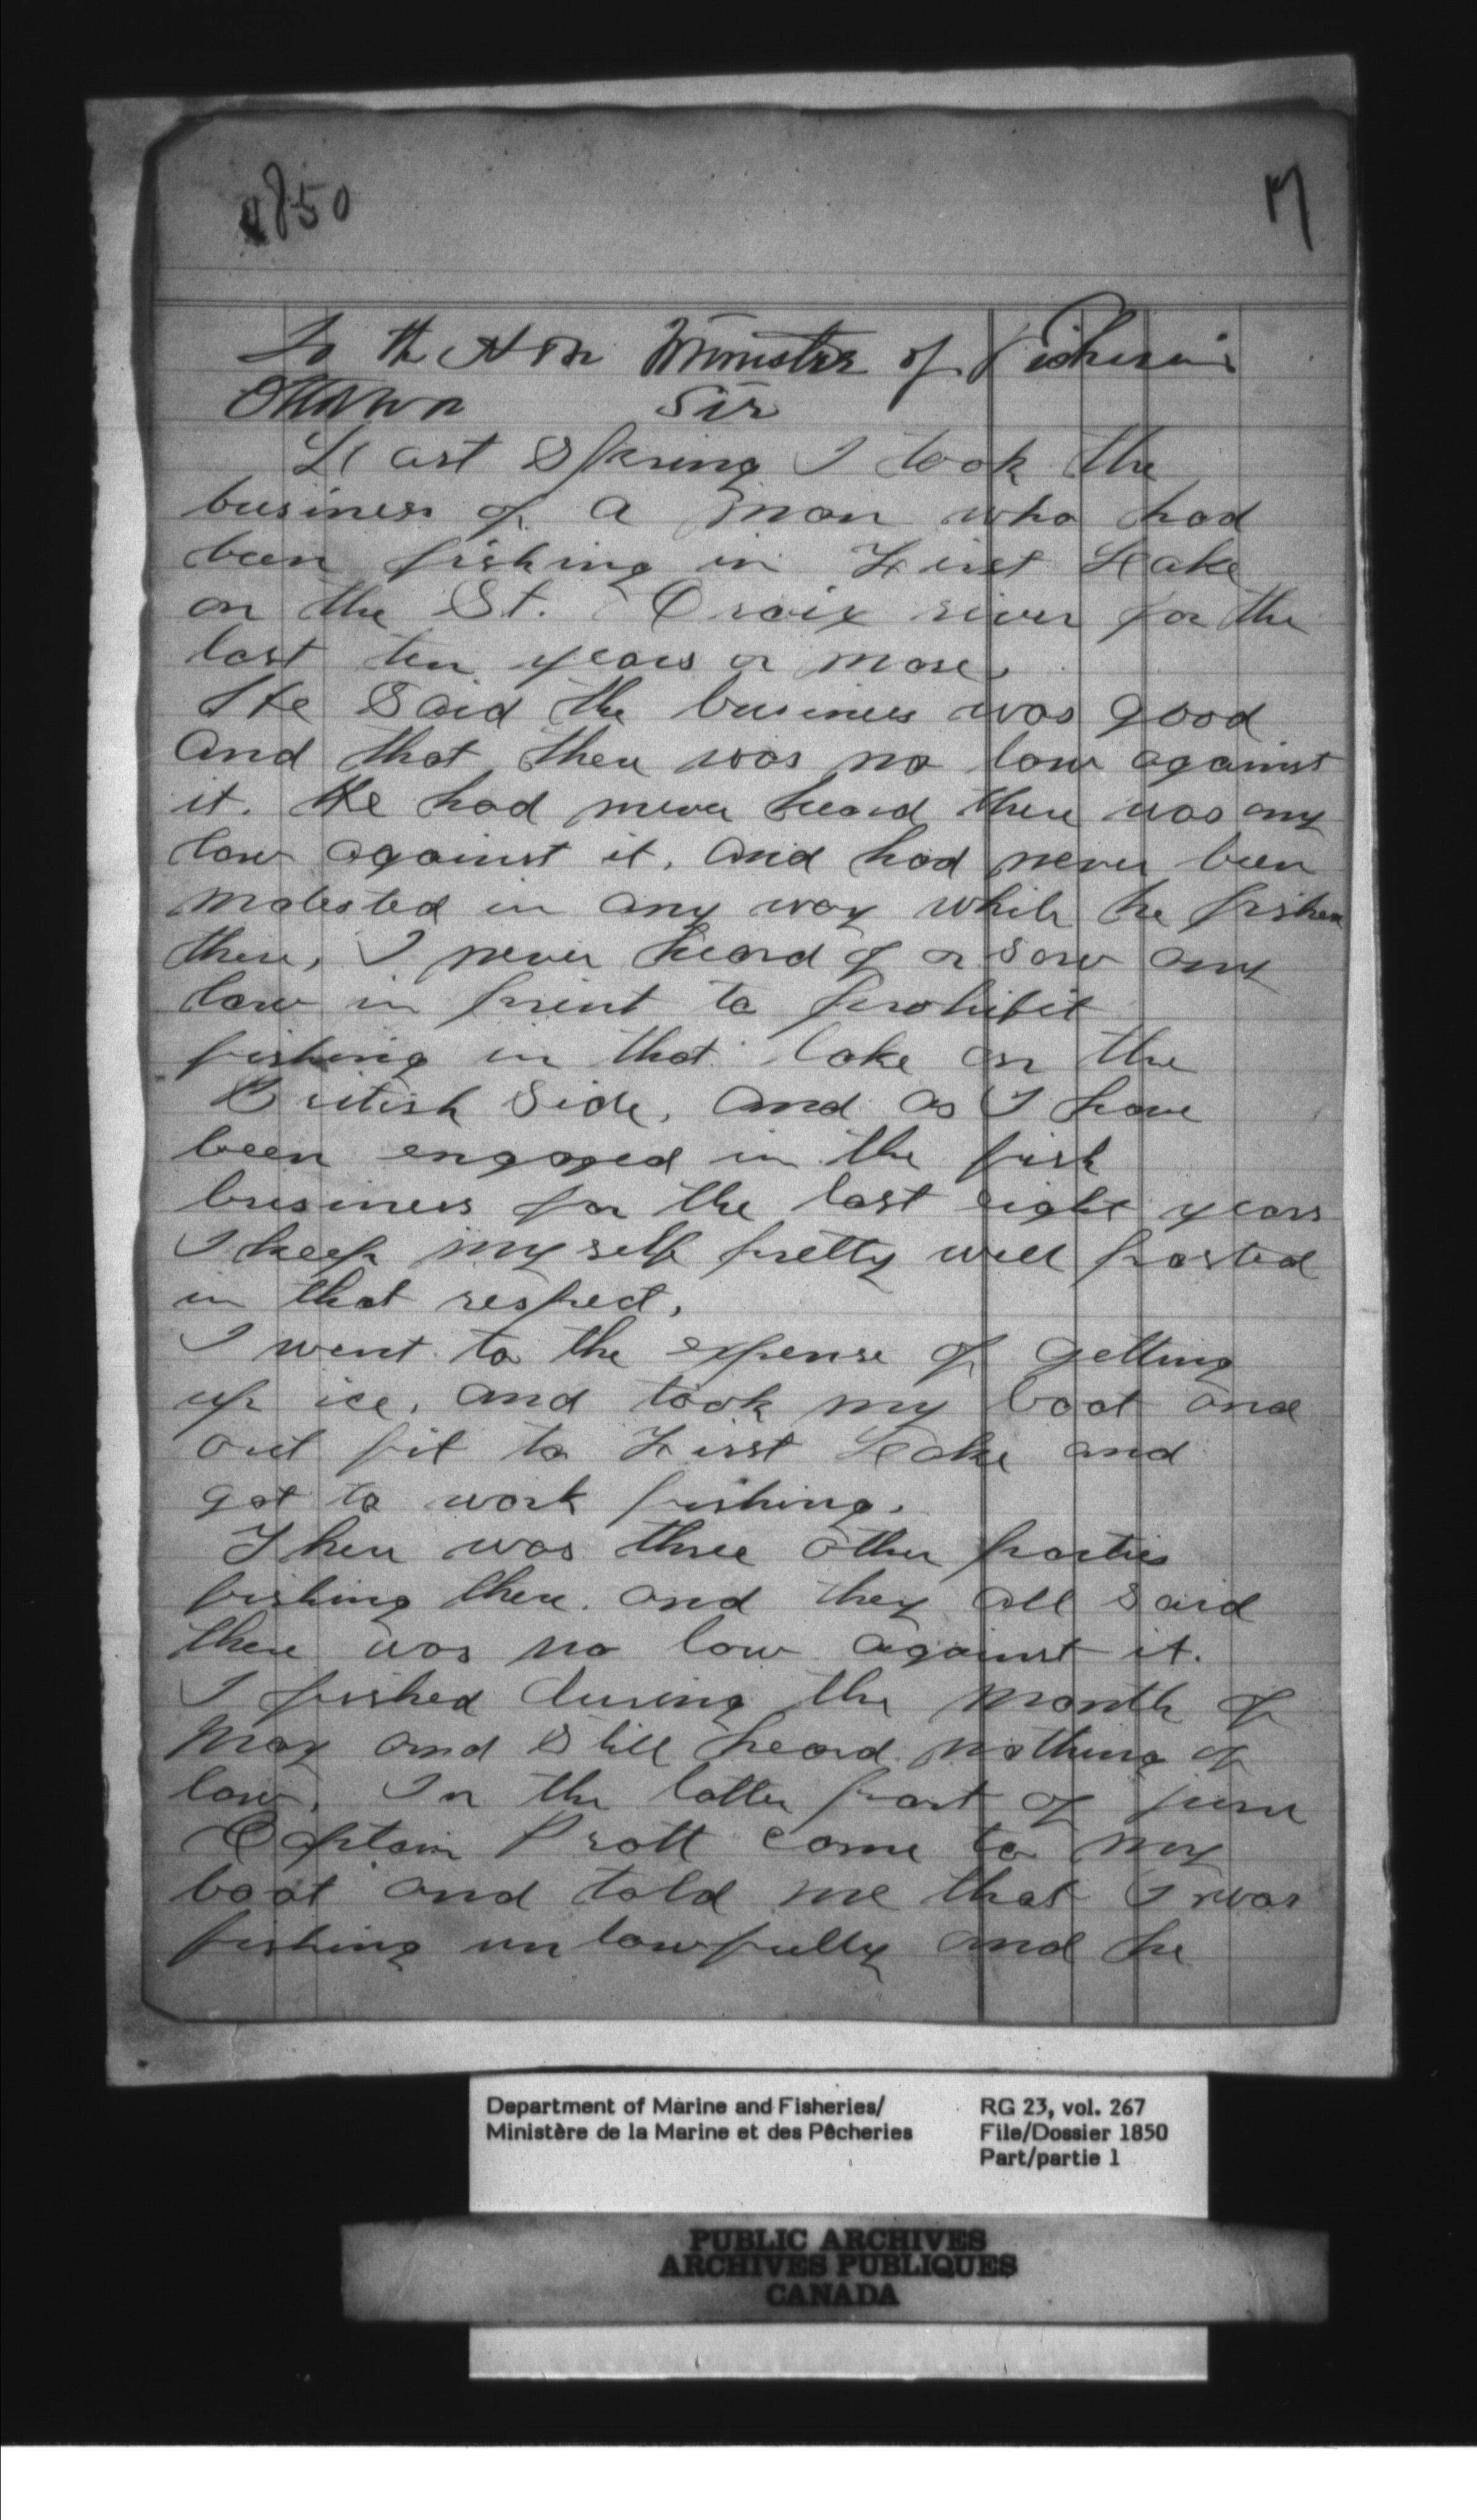 1850
17
To the Hon Minister of Fisheries
Ottawa Sir
Last Spring I took the
business of a man who had
been fishing in First Lake
on the St. Croix river for the
last ten years or more.
He Said the business was good
and that there was no law against
it. He had never heard there was any
law against it, and had never been
molested in any way while he fished
there, I never heard of or saw any
law in print to prohibit
fishing in that lake on the
British Side, and as I have
been engaged in the fish
business for the last eight years
I keep my self pretty well posted
in that respect,
I went to the expense of getting
up ice, and took my boat and
out fit to First Lake and
got to work fishing.
There was three other parties
fishing there. and they all said
there was no law against it.
I fished during the month of
May and Still heard nothing of
law. In the latter part of june
Captain Pratt came to my
boat and told me that I was
fishing un lawfully and he
Department of Marine and Fisheries/
Ministère de la Marine et des Pêcheries
RG 23, vol. 267
File/Dossier 1850
Part/partie 1
PUBLIC ARCHIVES
ARCHIVES PUBLIQUES
CANADA